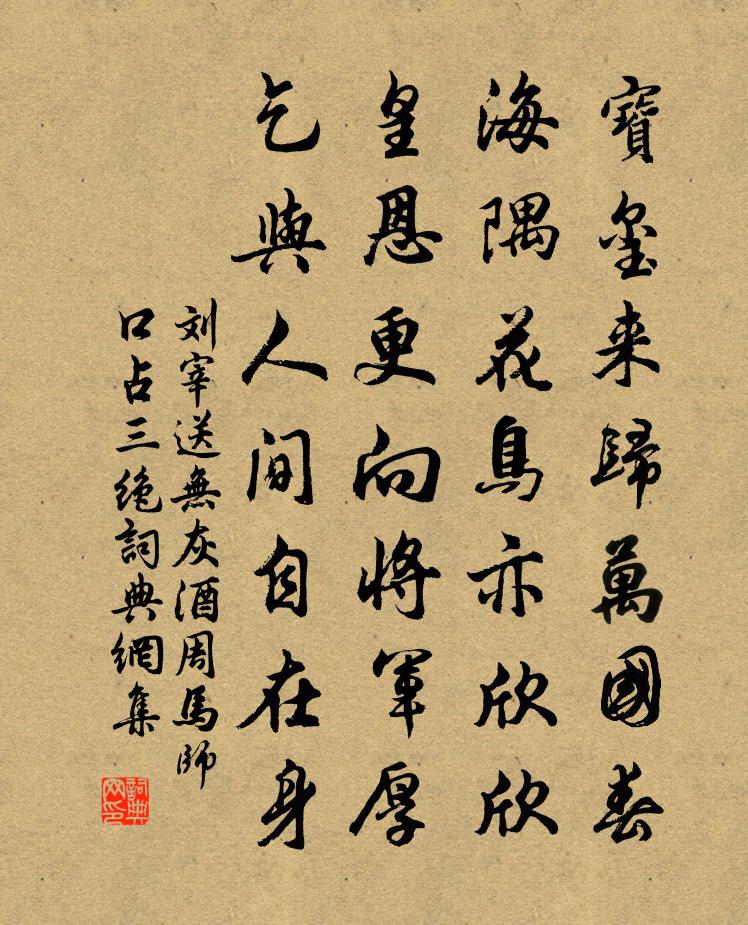 寶璽来歸萬國春
海隅花鳥亦欣欣
皇恩更向將軍厚
乞與人間自在身
刘宰送無灰酒周馬師
口占三绝詞典網集
詞典网印